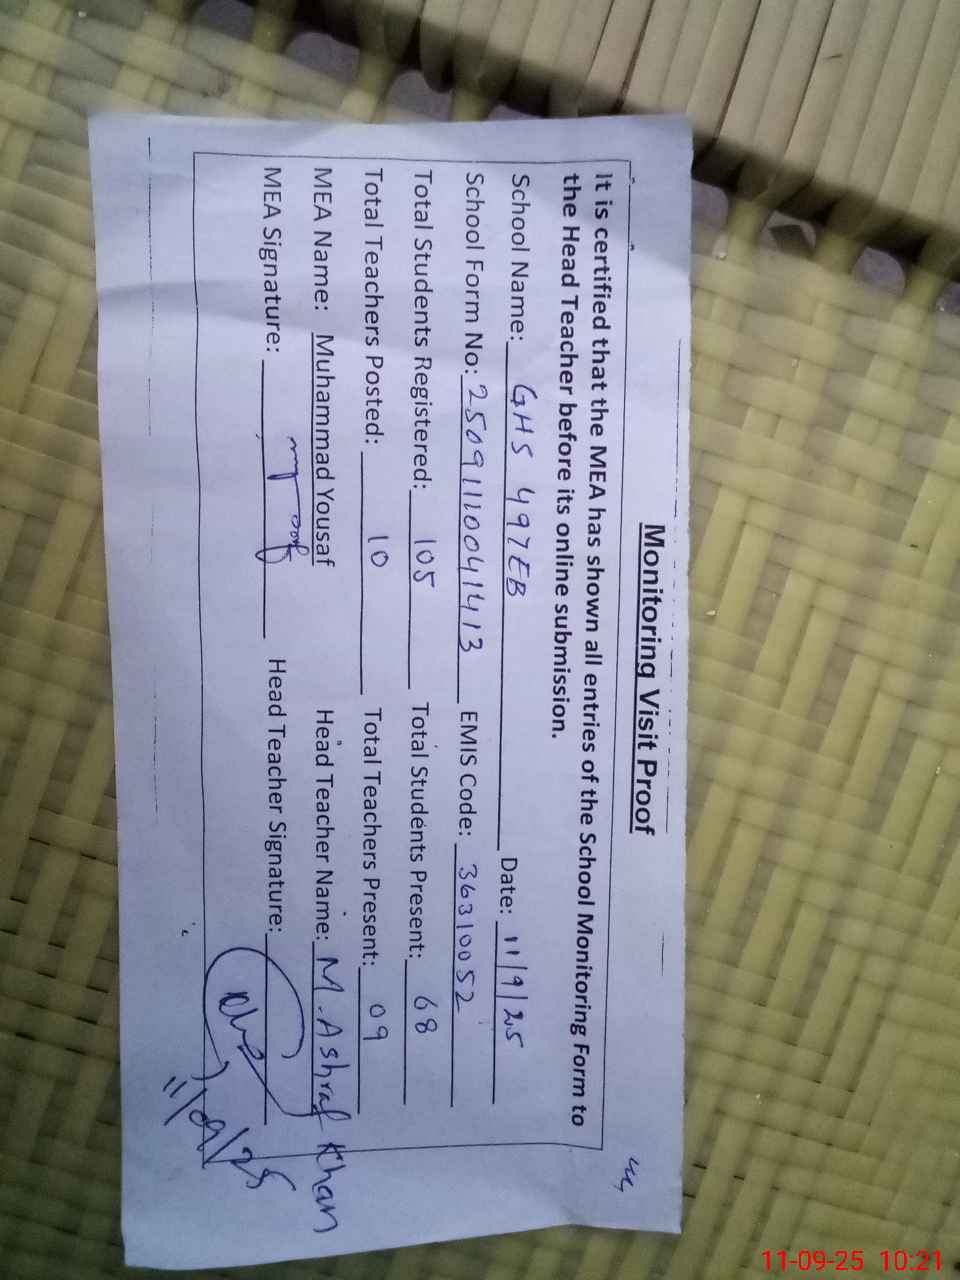 Monitoring Visit Proof
It is certified that the MEA has shown all entries of the School Monitoring Form to
the Head Teacher before its online submission.
School Name: GHS 497EB Date: 11/9/25
School Form No: 25091110041413 EMIS Code: 36310052
Total Students Registered: 105 Total Students Present: 68
Total Teachers Posted: 10 Total Teachers Present: 09
MEA Name: Muhammad Yousaf Head Teacher Name: M. Ashraf Khan
MEA Signature: Head Teacher Signature:
11/09/25
11-09-25 10:21